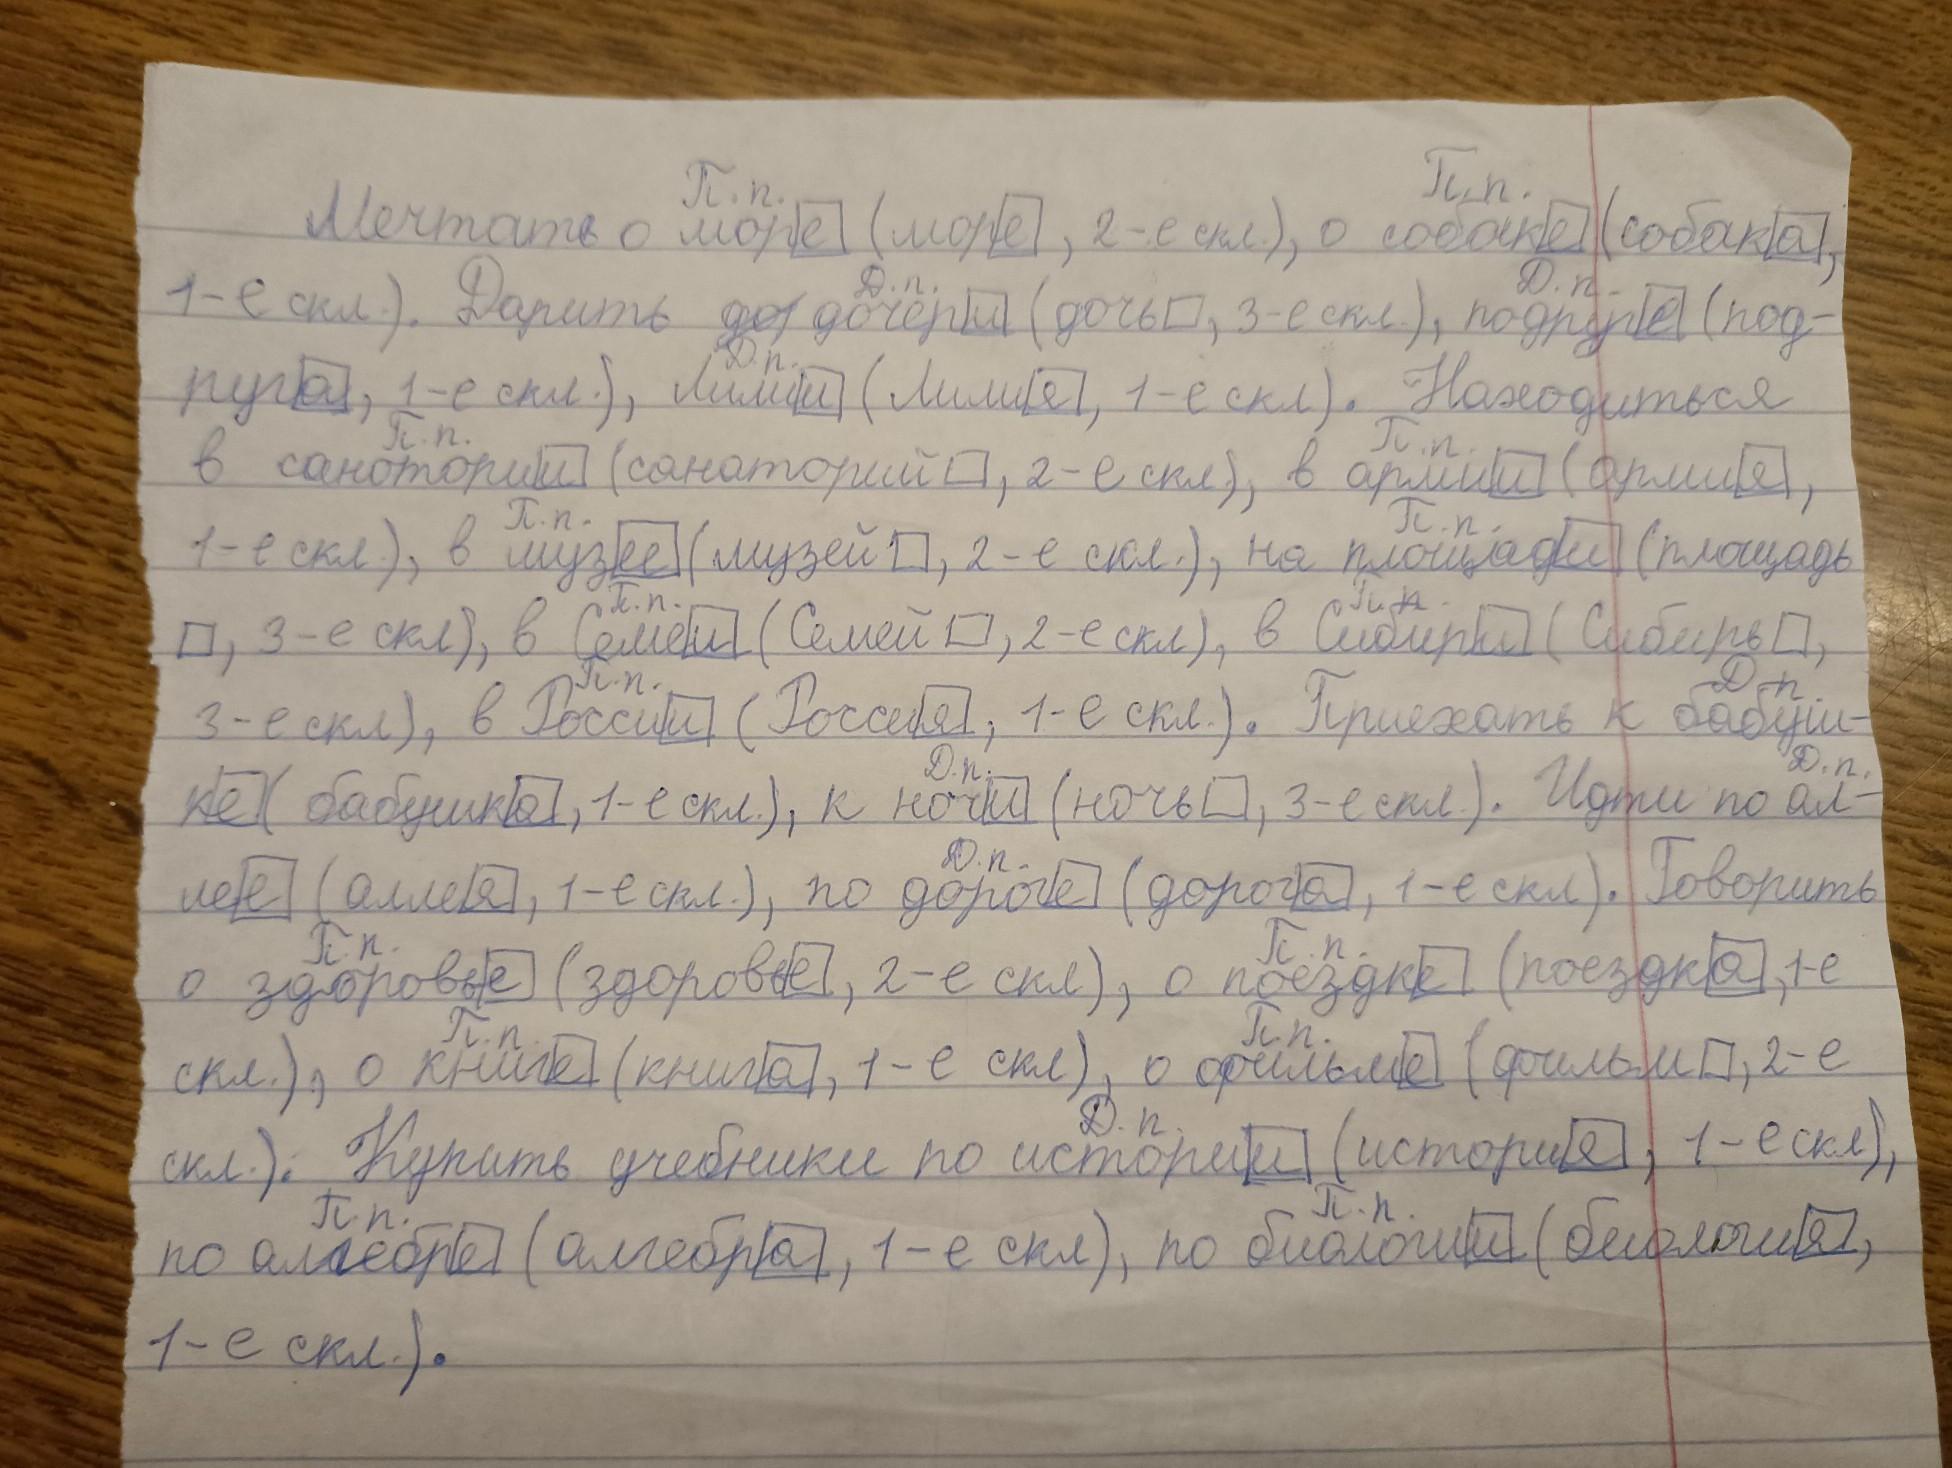 П.п. П.п.
Мечтать о море (море, 2-е скл.), о собаке (собака,
Д.п. Д.п.
1-е скл.). Дарить дочери (дочь, 3-е скл.), подруге (под-
Д.п.
руга, 1-е скл.), Лилии (Лилия, 1-е скл). Находиться
П.п. П.п.
в санотории (санаторий, 2-е скл), в армии (армия,
П.п. П.п.
1-е скл.), в музее (музей, 2-е скл.), на площади (площадь
П.п. П.п.
, 3-е скл), в Семеи (Семей, 2-е скл), в Сибири (Сибирь,
П.п. Д.п.
3-е скл), в России (Россия, 1-е скл.). Приехать к бабуш-
Д.п. Д.п.
ке (бабушка, 1-е скл.), к ночи (ночь, 3-е скл.). Идти по ал-
Д.п.
лее (аллея, 1-е скл.), по дороге (дорога, 1-е скл). Говорить
П.п. П.п.
о здоровье (здоровье, 2-е скл), о поездке (поездка, 1-е
П.п. П.п.
скл.), о книге (книга, 1-е скл), о фильме (фильм, 2-е
Д.п.
скл.). Купить учебники по истории (история, 1-е скл),
П.п. П.п.
по алгебре (алгебра, 1-е скл), по биологии (биология,
1-е скл.).